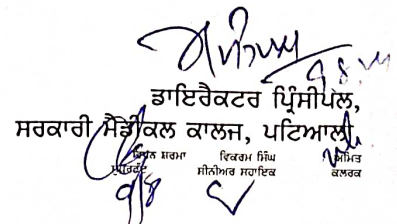 ਡਾਇਰੈਕਟਰ ਪ੍ਰਿੰਸੀਪਲ,
ਸਰਕਾਰੀ ਮੈਡੀਕਲ ਕਾਲਜ, ਪਟਿਆਲਾ
ਸ਼ਰਮਾ ਵਿਕਰਮ ਸਿੰਘ ਅਮਿਤ
ਸੁਪਰਡੰਟ ਸੀਨੀਅਰ ਸਹਾਇਕ ਕਲਰਕ